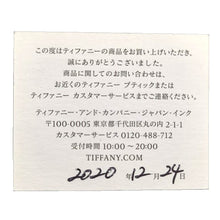 この度はティファニーの商品をお買い上げいただき、
誠にありがとうございました。
商品に関してのお問い合わせは、
お近くのティファニー ブティックまたは
ティファニー カスタマーサービスまでご連絡ください。
ティファニー・アンド・カンパニー・ジャパン・インク
〒100-0005 東京都千代田区丸の内 2-1-1
カスタマーサービス 0120-488-712
受付時間 10:00～20:00
TIFFANY.COM
2020年12月24日